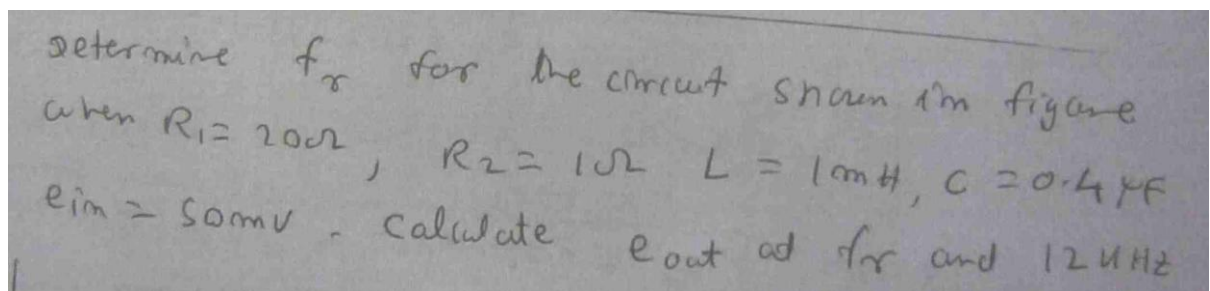 Determine fr for the circuit shown in figure
when R1 = 20Ω, R2 = 1Ω L = 1mH, C = 0.4 μF
ein = 50mv. Calculate eout at fr and 12 KHz